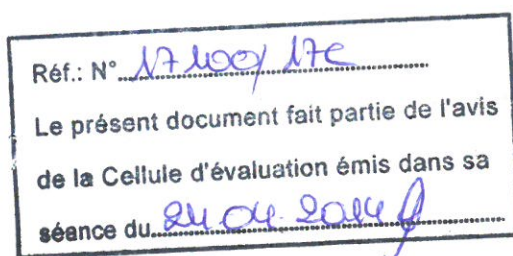 Réf.: N° 17100/17C
Le présent document fait partie de l'avis
de la Cellule d'évaluation émis dans sa
séance du 24.04.2014